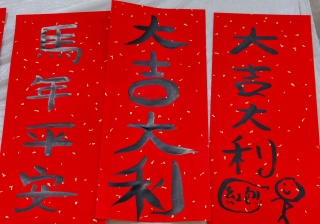 大吉大利
大吉大利
馬年平安